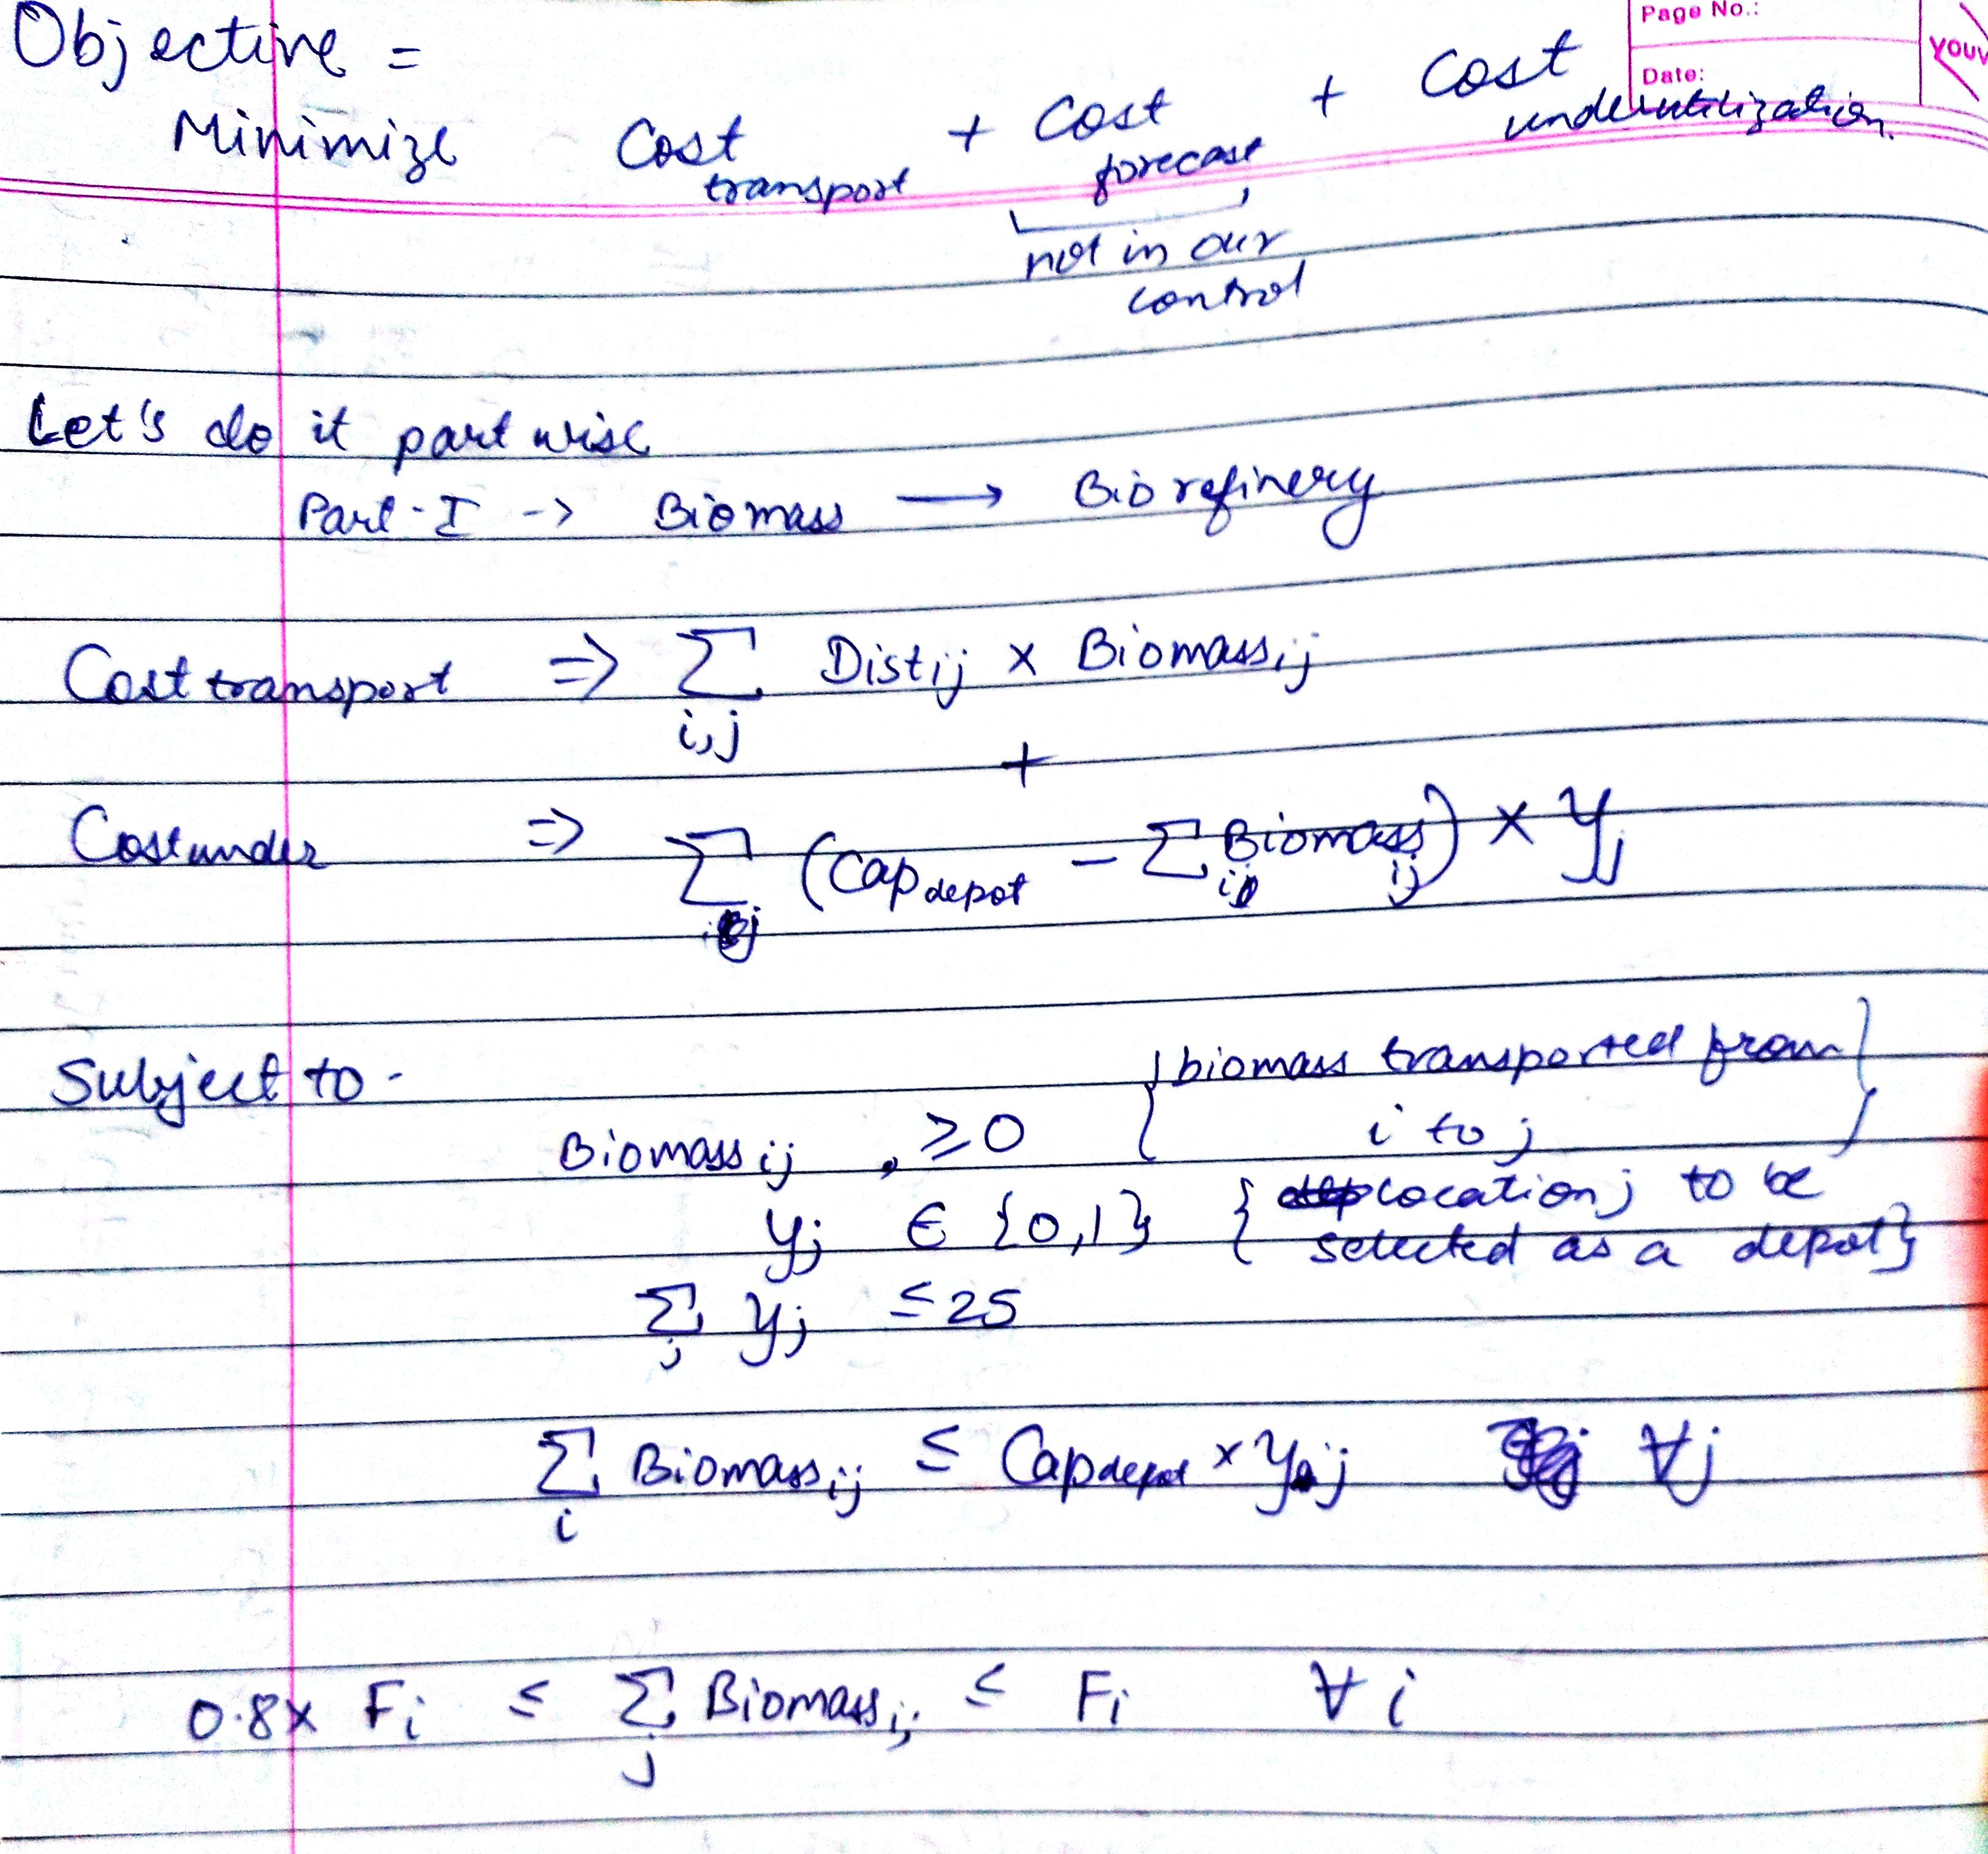 Page No.:
Date:
YOUV
Objective =
Minimize Cost transport + Cost forecast + Cost underutilization.
not in our
control
Let's do it part wise
Part-I -> Biomass ⟶ Biorefinery
Cost transport => ∑ i,j Dist ij × Biomass ij
+
Cost under => ∑ j (Cap depot - ∑ i Biomass ij) × Yj
Subject to -
Biomass ij , ≥ 0 { biomass transported from
i to j }
yj ∈ {0,1} { location j to be
selected as a depot }
∑ j yj ≤ 25
∑ i Biomass ij ≤ Cap depot × yj ∀j
0.8 × Fi ≤ ∑ j Biomass ij ≤ Fi ∀ i